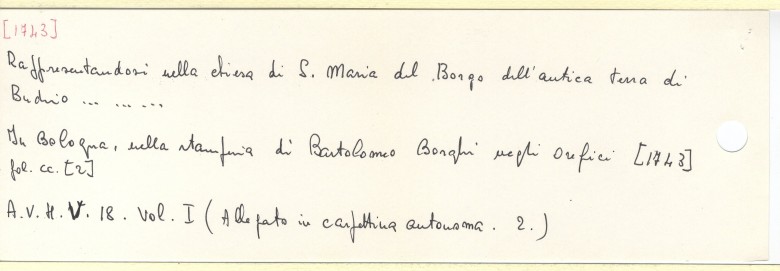 [1743]
Raffresentandosi nella chiesa di S. Maria del Borgo dell'antica terra di
Budrio ... ... ...
In Bologna, nella stamperia di Bartolomeo Borghi negli Orefici [1743]
fol. cc. [2]
A.V.H.V. 18. Vol. I (Allegato in carpettina autonoma. 2.)